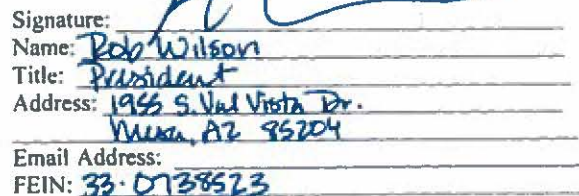 Signature:
Name: Rob Wilson
Title: President
Address: 1955 S. Val Vista Dr.
Mesa, AZ 85204
Email Address:
FEIN: 33-0738523